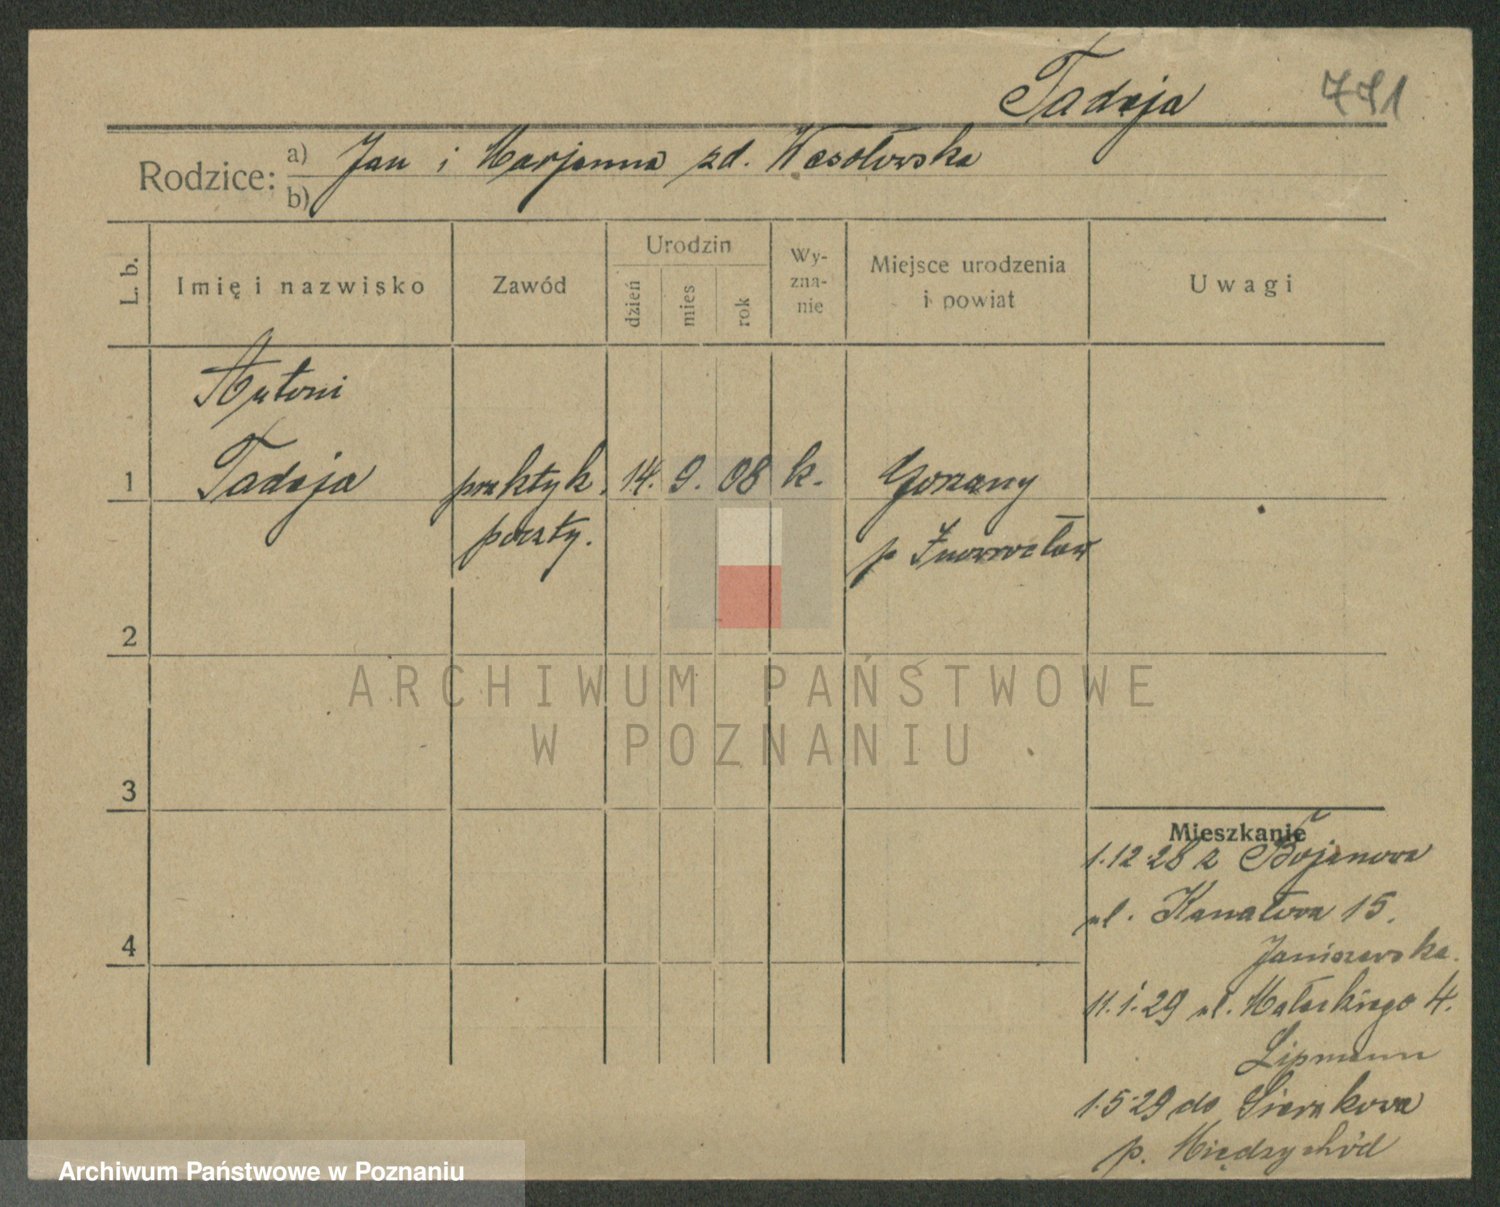 Tadeja 791
Rodzice: a) Jan i Marjanna zd. Wesołowska
b)
L. b.
Imię i nazwisko
Zawód
Urodzin
dzień
mies
rok
Wy-
zna-
nie
Miejsce urodzenia
i powiat
Uwagi
Antoni
1 Tadeja praktyk. 14. 9. 08 k. Gorzany
poczty. p Inowrocław
2
3
4
Mieszkanie
1.12.28 z Bojanowa
ul. Kanałowa 15.
Janiszewska.
11.1.29 ul. Małeckiego 4.
Lipmann
1.5.29 do Sierakowa
p. Międzychód
ARCHIWUM PAŃSTWOWE
W POZNANIU
Archiwum Państwowe w Poznaniu